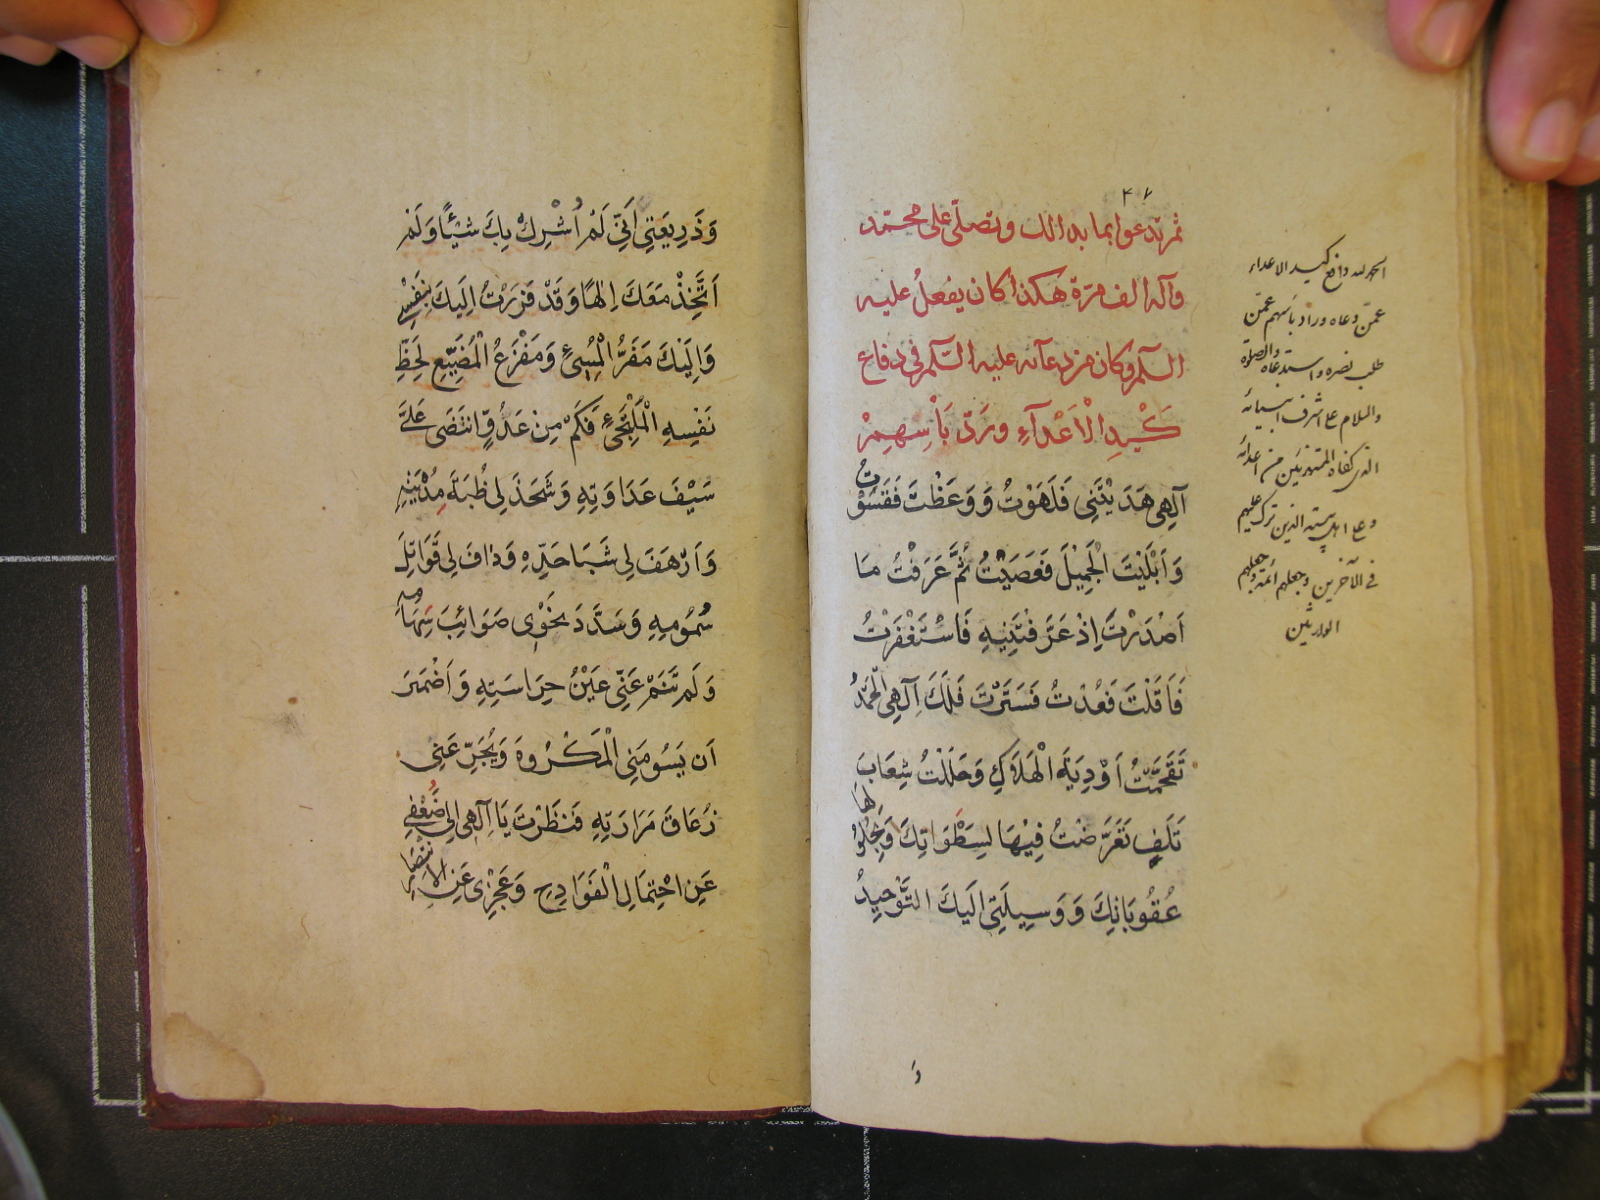 ٤٧
ثم تدعوا بما بدا لك وتصلى على محمد
وآله الف مرة هكذا كان يفعل عليه
السلم وكان من دعائه عليه السلم فى دفاع
كَيْدِ الْاَعْدَآءِ وَرَدِّ بَاْسِهِمْ
اَلٰهِى هَدَيْتَنِى فَلَهَوْتُ وَوَعَظْتَ فَقَسَوْتُ
وَاَبْلَيْتَ الْجَمِيْلَ فَعَصَيْتُ ثُمَّ عَرَفْتُ مَا
اَصْدَرْتَ اِذْ عَرَّفْتَنِيْهِ فَاسْتَغْفَرْتُ
فَاَقَلْتَ فَعُدْتُ فَسَتَرْتَ فَلَكَ اِلٰهِى الْحَمْدُ
تَقَحَّمْتُ اَوْدِيَةَ الْهَلَاكِ وَحَلَلْتُ شِعَابَ
تَلَفٍ تَعَرَّضْتُ فِيْهَا لِسَطَوَاتِكَ وَبِحُلُوْلِهَا
عُقُوْبَاتِكَ وَوَسِيْلَتِى اِلَيْكَ التَّوْحِيْدُ
وَ
الحمد لله دافع كيد الاعداء
عمن دعاه وراد باسهم عمن
طلب نصره واستدعاه والصلوة
والسلام على اشرف انبيائه
الذى كفاه المستهزئين من اعدائه
وعلى اهل بيته الذين ترك عليهم
فى الآخرين وجعلهم ائمة وجعلهم
الوارثين
وَذَرِيْعَتِى اَنِّى لَمْ اُشْرِكْ بِكَ شَيْئًا وَلَمْ
اَتَّخِذْ مَعَكَ اِلٰهًا وَقَدْ فَرَرْتُ اِلَيْكَ بِنَفْسِى
وَاِلَيْكَ مَفَرُّ الْمُسِىْءِ وَمَفْزَعُ الْمُضَيِّعِ لِحَظِّ
نَفْسِهِ الْمُلْتَجِىءِ فَكَمْ مِنْ عَدُوٍّ انْتَضَى عَلَىَّ
سَيْفَ عَدَاوَتِهِ وَشَحَذَ لِى ظُبَةَ مُدْيَتِهِ
وَاَرْهَفَ لِى شَبَا حَدِّهِ وَدَافَ لِى قَوَاتِلَ
سُمُوْمِهِ وَسَدَّدَ نَحْوِى صَوَائِبَ سِهَامِهِ
وَلَمْ تَنَمْ عَنِّى عَيْنُ حِرَاسَتِهِ وَاَضْمَرَ
اَنْ يَسُوْمَنِى الْمَكْرُوْهَ وَيُجَرِّعَنِى
زُعَاقَ مَرَارَتِهِ فَنَظَرْتَ يَا اِلٰهِى اِلٰى ضَعْفِى
عَنِ احْتِمَالِ الْفَوَادِحِ وَعَجْزِى عَنِ الْاِنْتِصَارِ